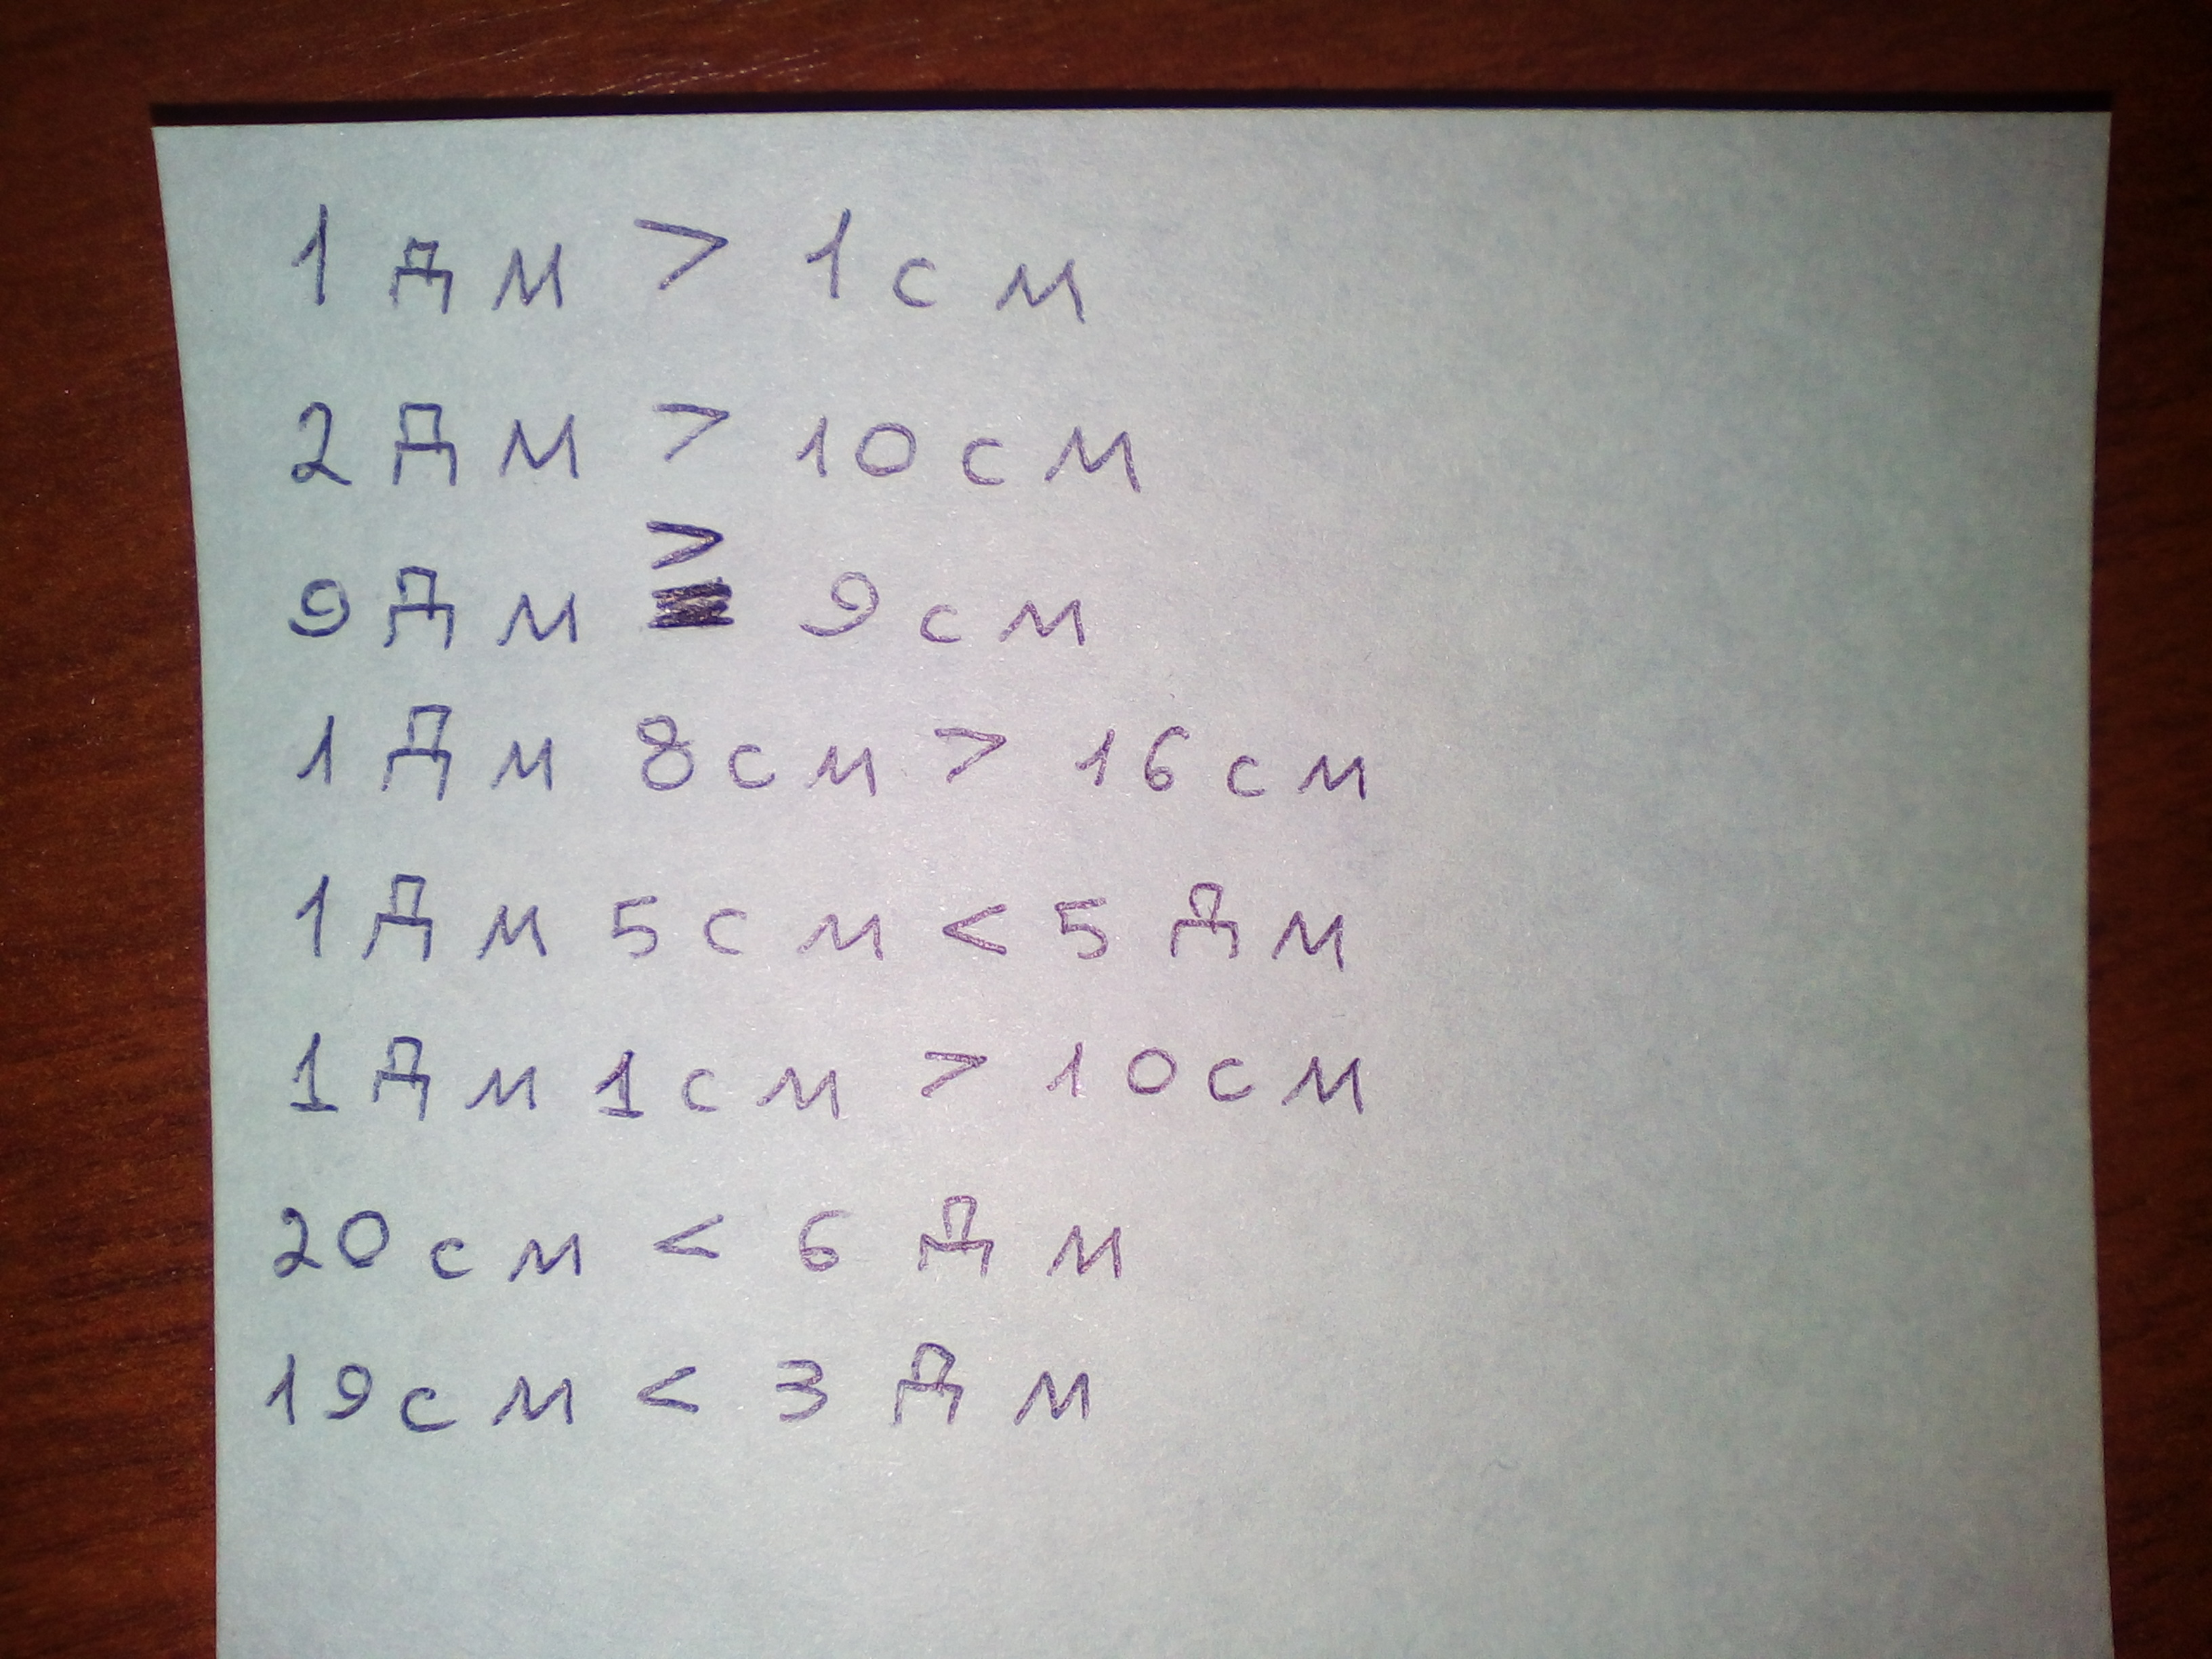 1 дм > 1 см
2 дм > 10 см
9 дм > 9 см
1 дм 8 см > 16 см
1 дм 5 см < 5 дм
1 дм 1 см > 10 см
20 см < 6 дм
19 см < 3 дм